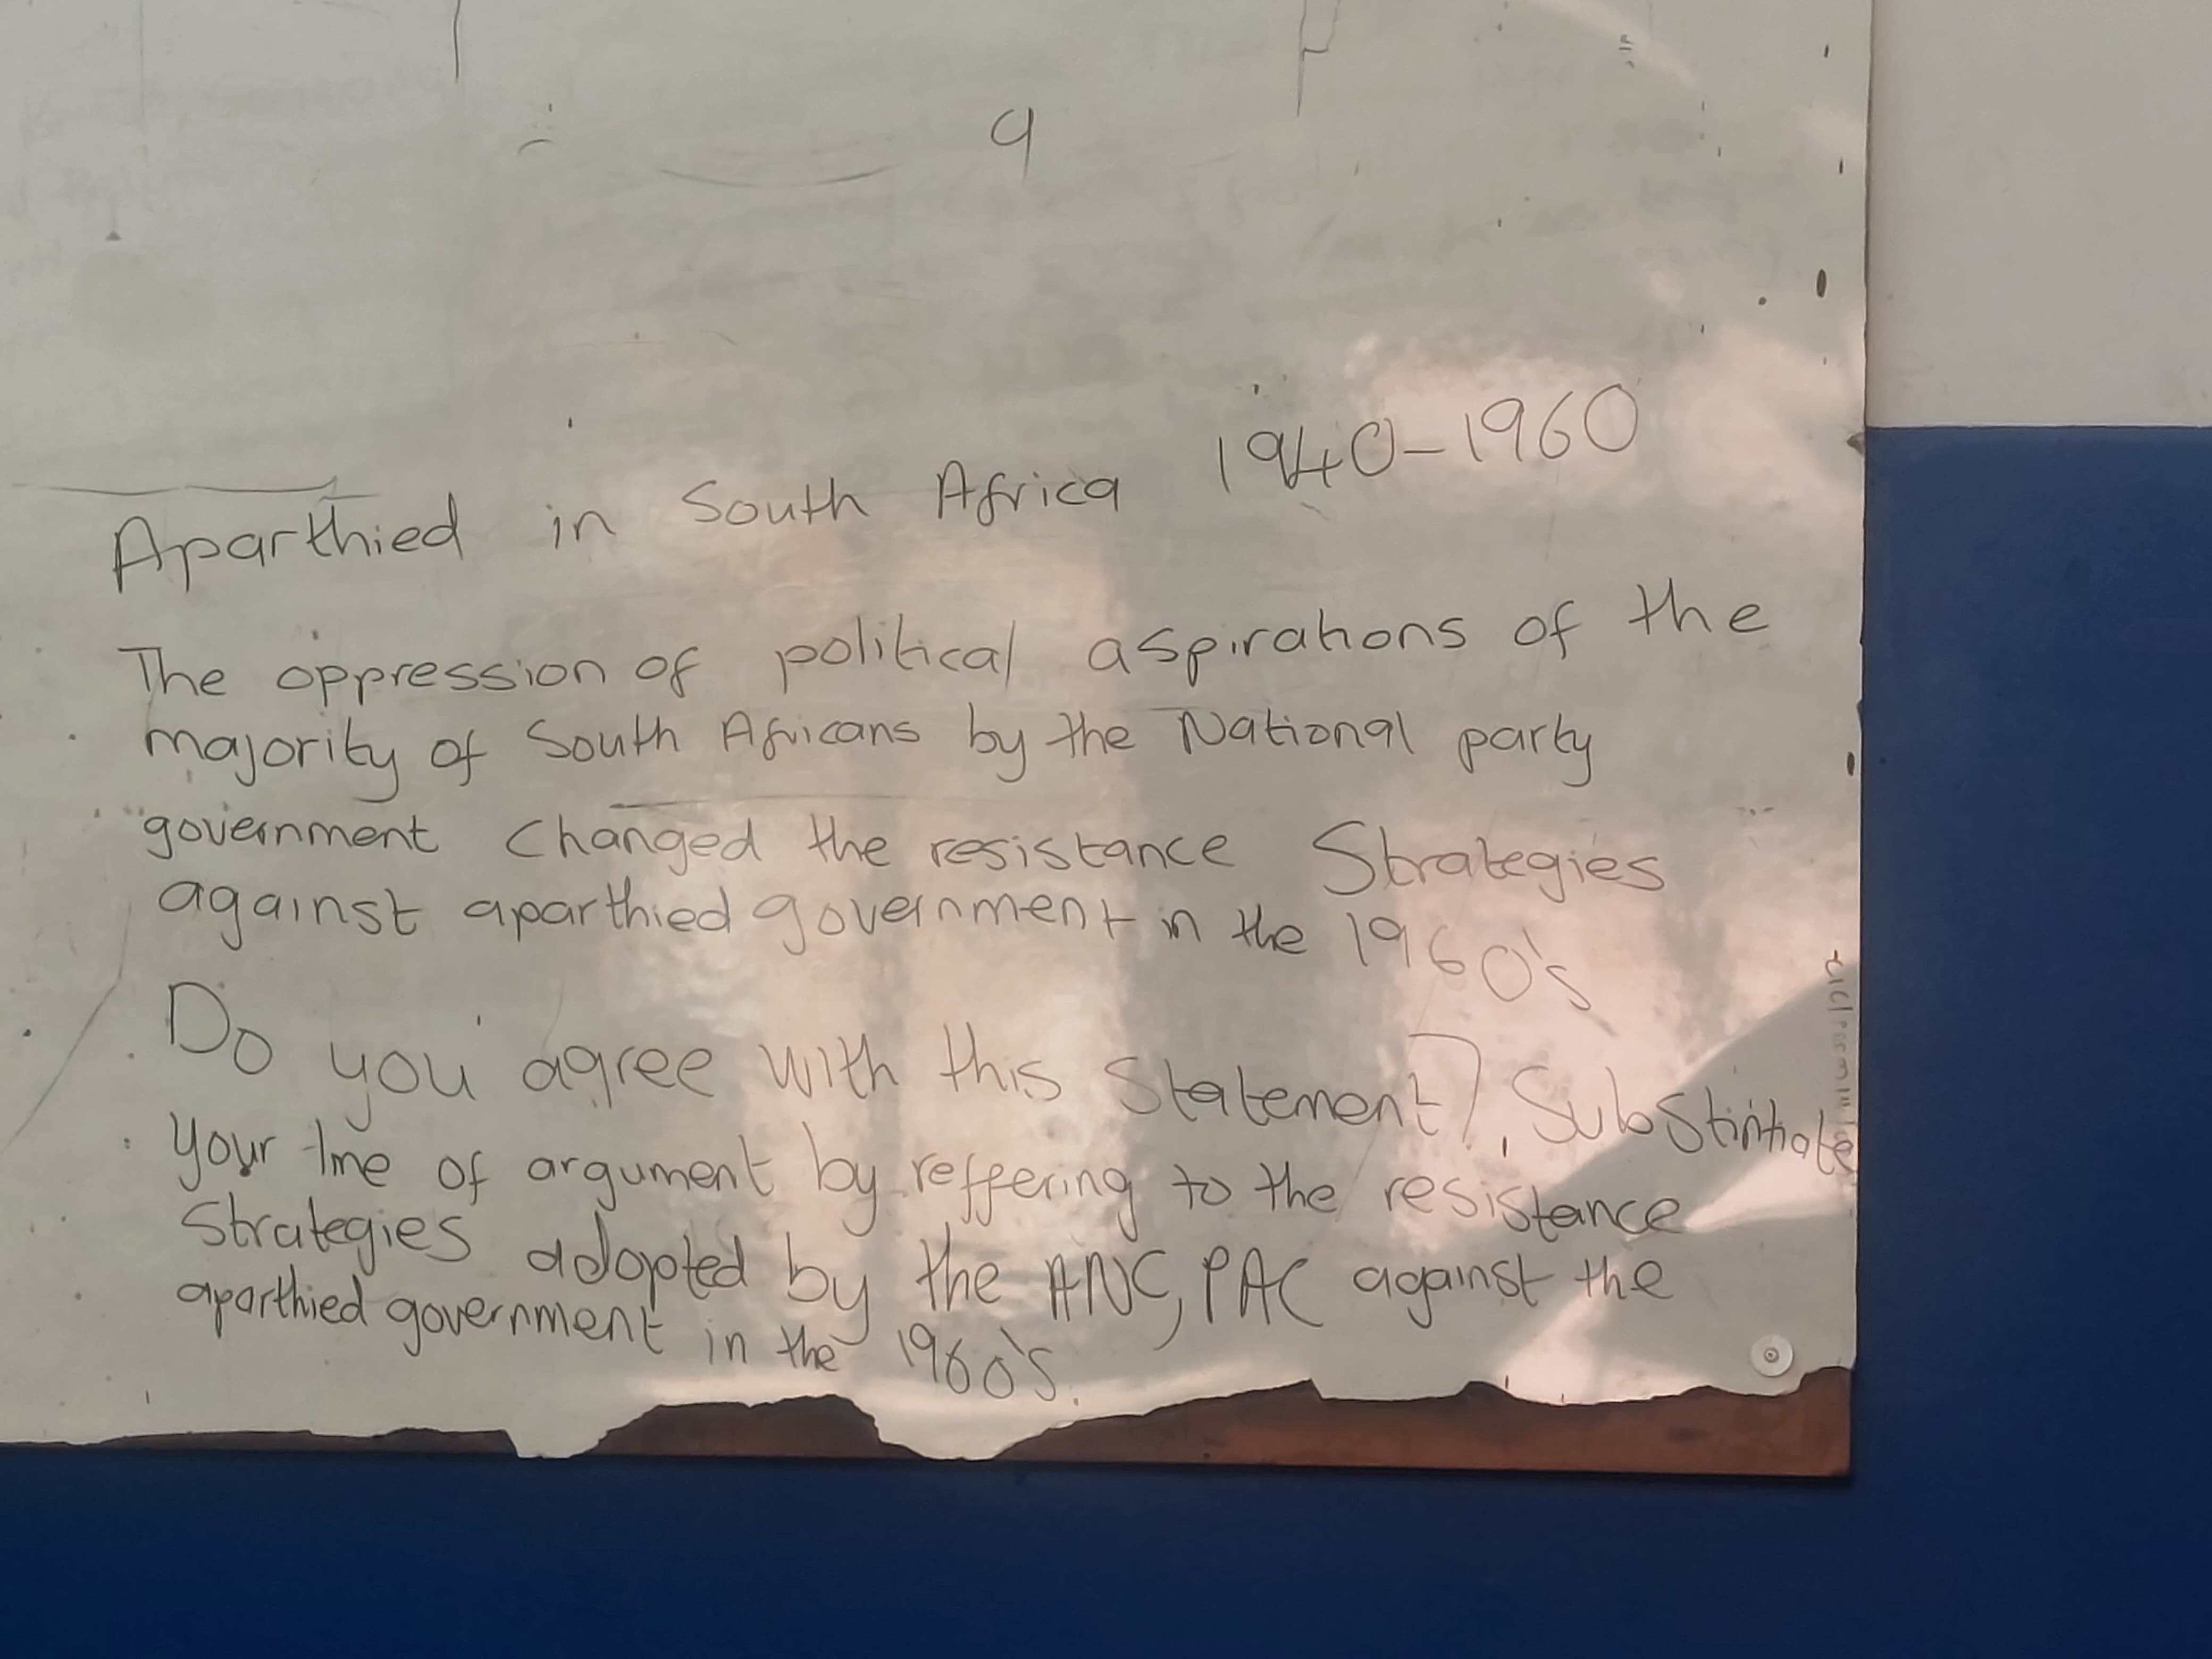 9
Aparthied in South Africa 1940-1960
The oppression of political aspirations of the
majority of South Africans by the National party
government changed the resistance Strategies
against aparthied government in the 1960's
Do you agree with this statement?. Substintiate
your line of argument by reffering to the resistance
Strategies adopted by the ANC, PAC against the
aparthied government in the 1960's.